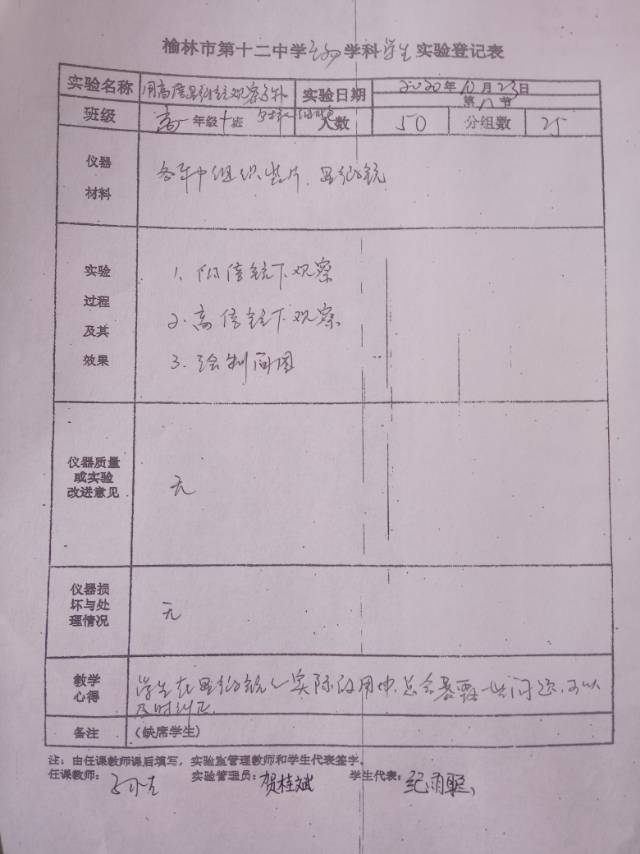 榆林市第十二中学生物学科学生实验登记表
实验名称 用高倍显微镜观察 实验日期 2020年10月23日
第八节
班级 高一年级十班 人数 50 分组数 25
仪器
材料
各种组织装片、显微镜
实验
过程
及其
效果
1. 低倍镜下观察
2. 高倍镜下观察
3. 绘制简图
仪器质量
或实验
改进意见
无
仪器损
坏与处
理情况
无
教学
心得
学生在显微镜实际使用中,总会暴露一些问题,可以
及时纠正
备注 (缺席学生)
注:由任课教师课后填写,实验监管理教师和学生代表签字。
任课教师: 实验管理员:贺桂斌 学生代表:纪雨聪